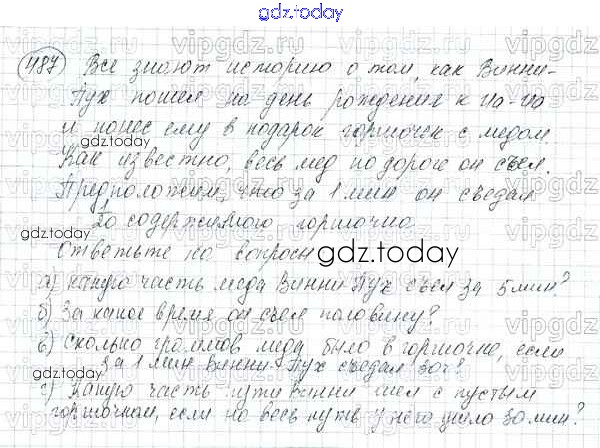 gdz.today
487) Все знают историю о том, как Винни-
Пух пошел на день рождения к Иа-Иа
и понес ему в подарок горшочек с медом.
Как известно, весь мед по дороге он съел.
Предположем, что за 1 мин он съедал
1/20 содержимого горшочка.
Ответьте на вопросы
а) какую часть меда Винни-Пух съел за 5 мин?
б) За какое время он съел половину?
в) сколько граммов меда было в горшочке, если
за 1 мин Винни-Пух съедал 30г?
г) Какую часть пути Винни шел с пустым
горшочком, если на весь путь у него ушло 30 мин?
gdz.today
gdz.today
gdz.today
gdz.today